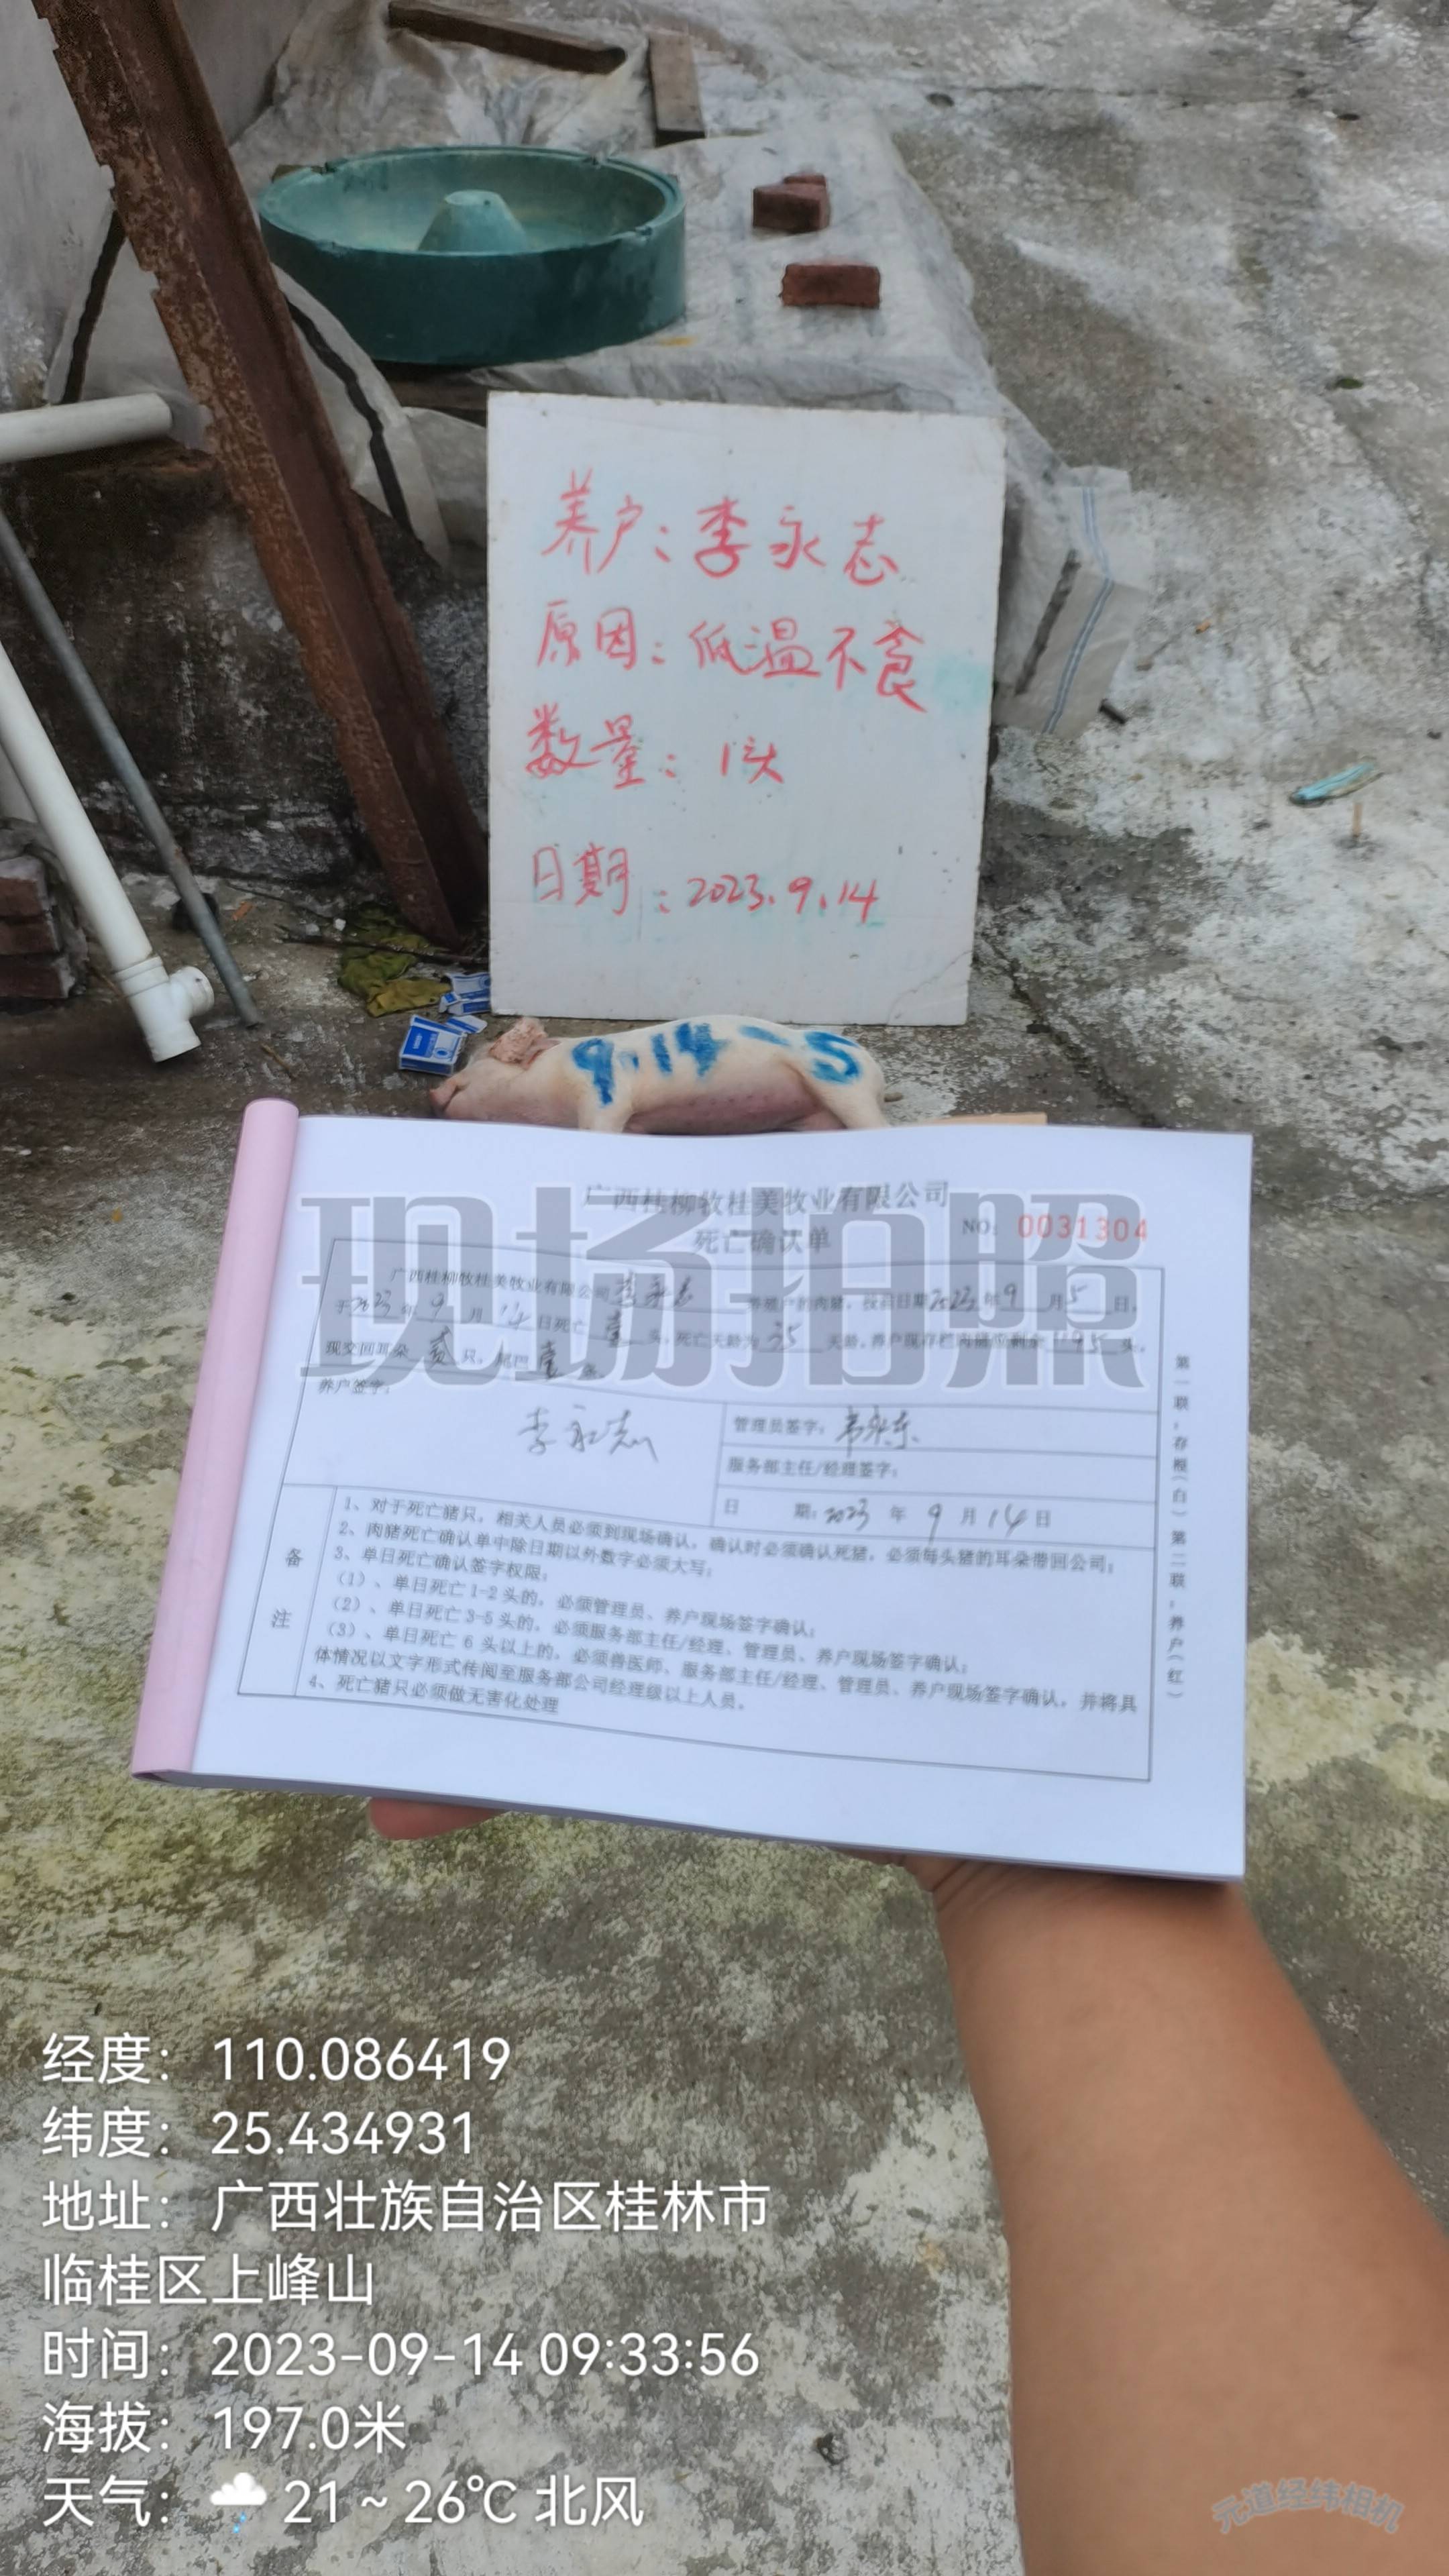 养户：李永志
原因：低温不食
数量：1头
日期：2023.9.14
9.14-5
广西桂柳牧桂美牧业有限公司
死亡确认单
NO: 0031304
现场拍照
广西桂柳牧桂美牧业有限公司李永志养殖户的肉猪，投苗日期2023年9月5日，
于2023年9月14日死亡壹头，死亡天龄为35天龄，养户现存栏肉猪应剩余495头。
现交回耳朵贰只，尾巴壹条。
养户签字：
李永志
管理员签字：
服务部主任/经理签字：
日期：2023年9月14日
备注
1、对于死亡猪只，相关人员必须到现场确认，确认时必须确认死猪，必须每头猪的耳朵带回公司；
2、肉猪死亡确认单中除日期以外数字必须大写；
3、单日死亡确认签字权限：
（1）、单日死亡1-2头的，必须管理员、养户现场签字确认；
（2）、单日死亡3-5头的，必须服务部主任/经理、管理员、养户现场签字确认；
（3）、单日死亡6头以上的，必须兽医师、服务部主任/经理、管理员、养户现场签字确认，并将具
体情况以文字形式传阅至服务部公司经理级以上人员。
4、死亡猪只必须做无害化处理
第一联：存根（白）第二联：养户（红）
经度：110.086419
纬度：25.434931
地址：广西壮族自治区桂林市
临桂区上峰山
时间：2023-09-14 09:33:56
海拔：197.0米
天气：21～26℃ 北风
元道经纬相机